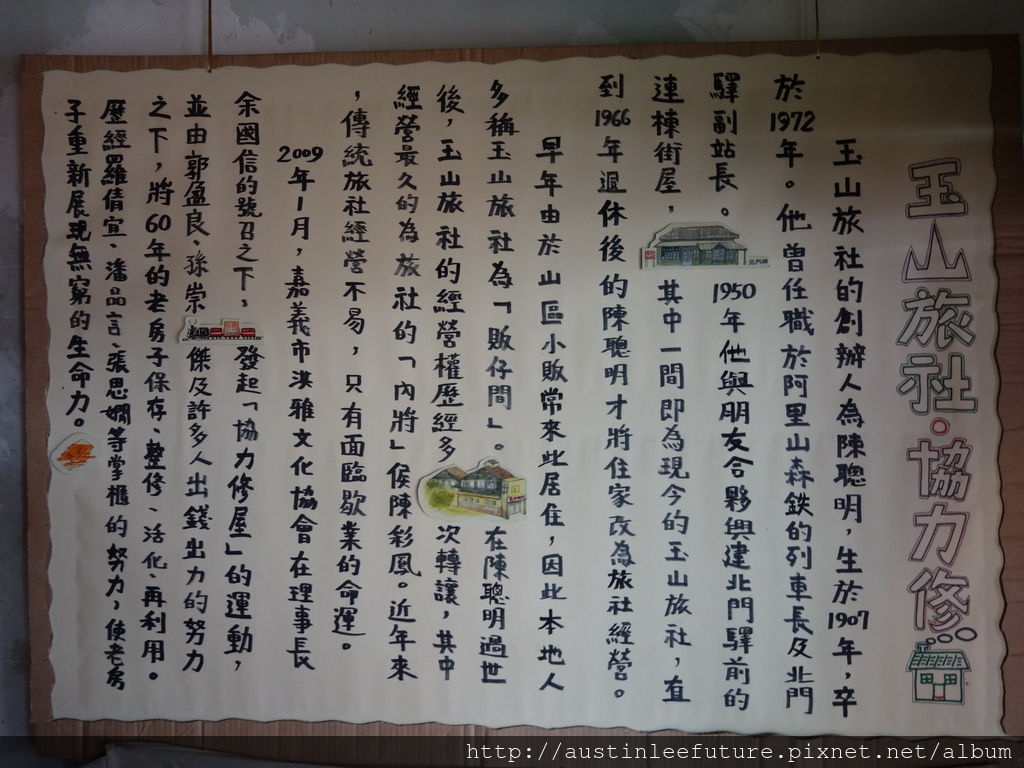 玉山旅社•協力修
玉山旅社的創辦人為陳聰明，生於1907年，卒
於1972年。他曾任職於阿里山森鉄的列車長及北門
驛副站長。1950年他與朋友合夥興建北門驛前的
連棟街屋，其中一間即為現今的玉山旅社，直
到1966年退休後的陳聰明才將住家改為旅社經營。
早年由於山區小販常來此居住，因此本地人
多稱玉山旅社為「販仔間」。在陳聰明過世
後，玉山旅社的經營權歷經多次轉讓，其中
經營最久的為旅社的「內將」侯陳彩鳳。近年來
，傳統旅社經營不易，只有面臨歇業的命運。
2009年1月，嘉義市洪雅文化協會在理事長
余國信的號召之下，發起「協力修屋」的運動，
並由郭盈良、孫崇傑及許多人出錢出力的努力
之下，將60年的老房子保存、整修、活化、再利用。
歷經羅倩宜、潘品言、張思嫺等掌櫃的努力，使老房
子重新展現無窮的生命力。
http://austinleefuture.pixnet.net/album